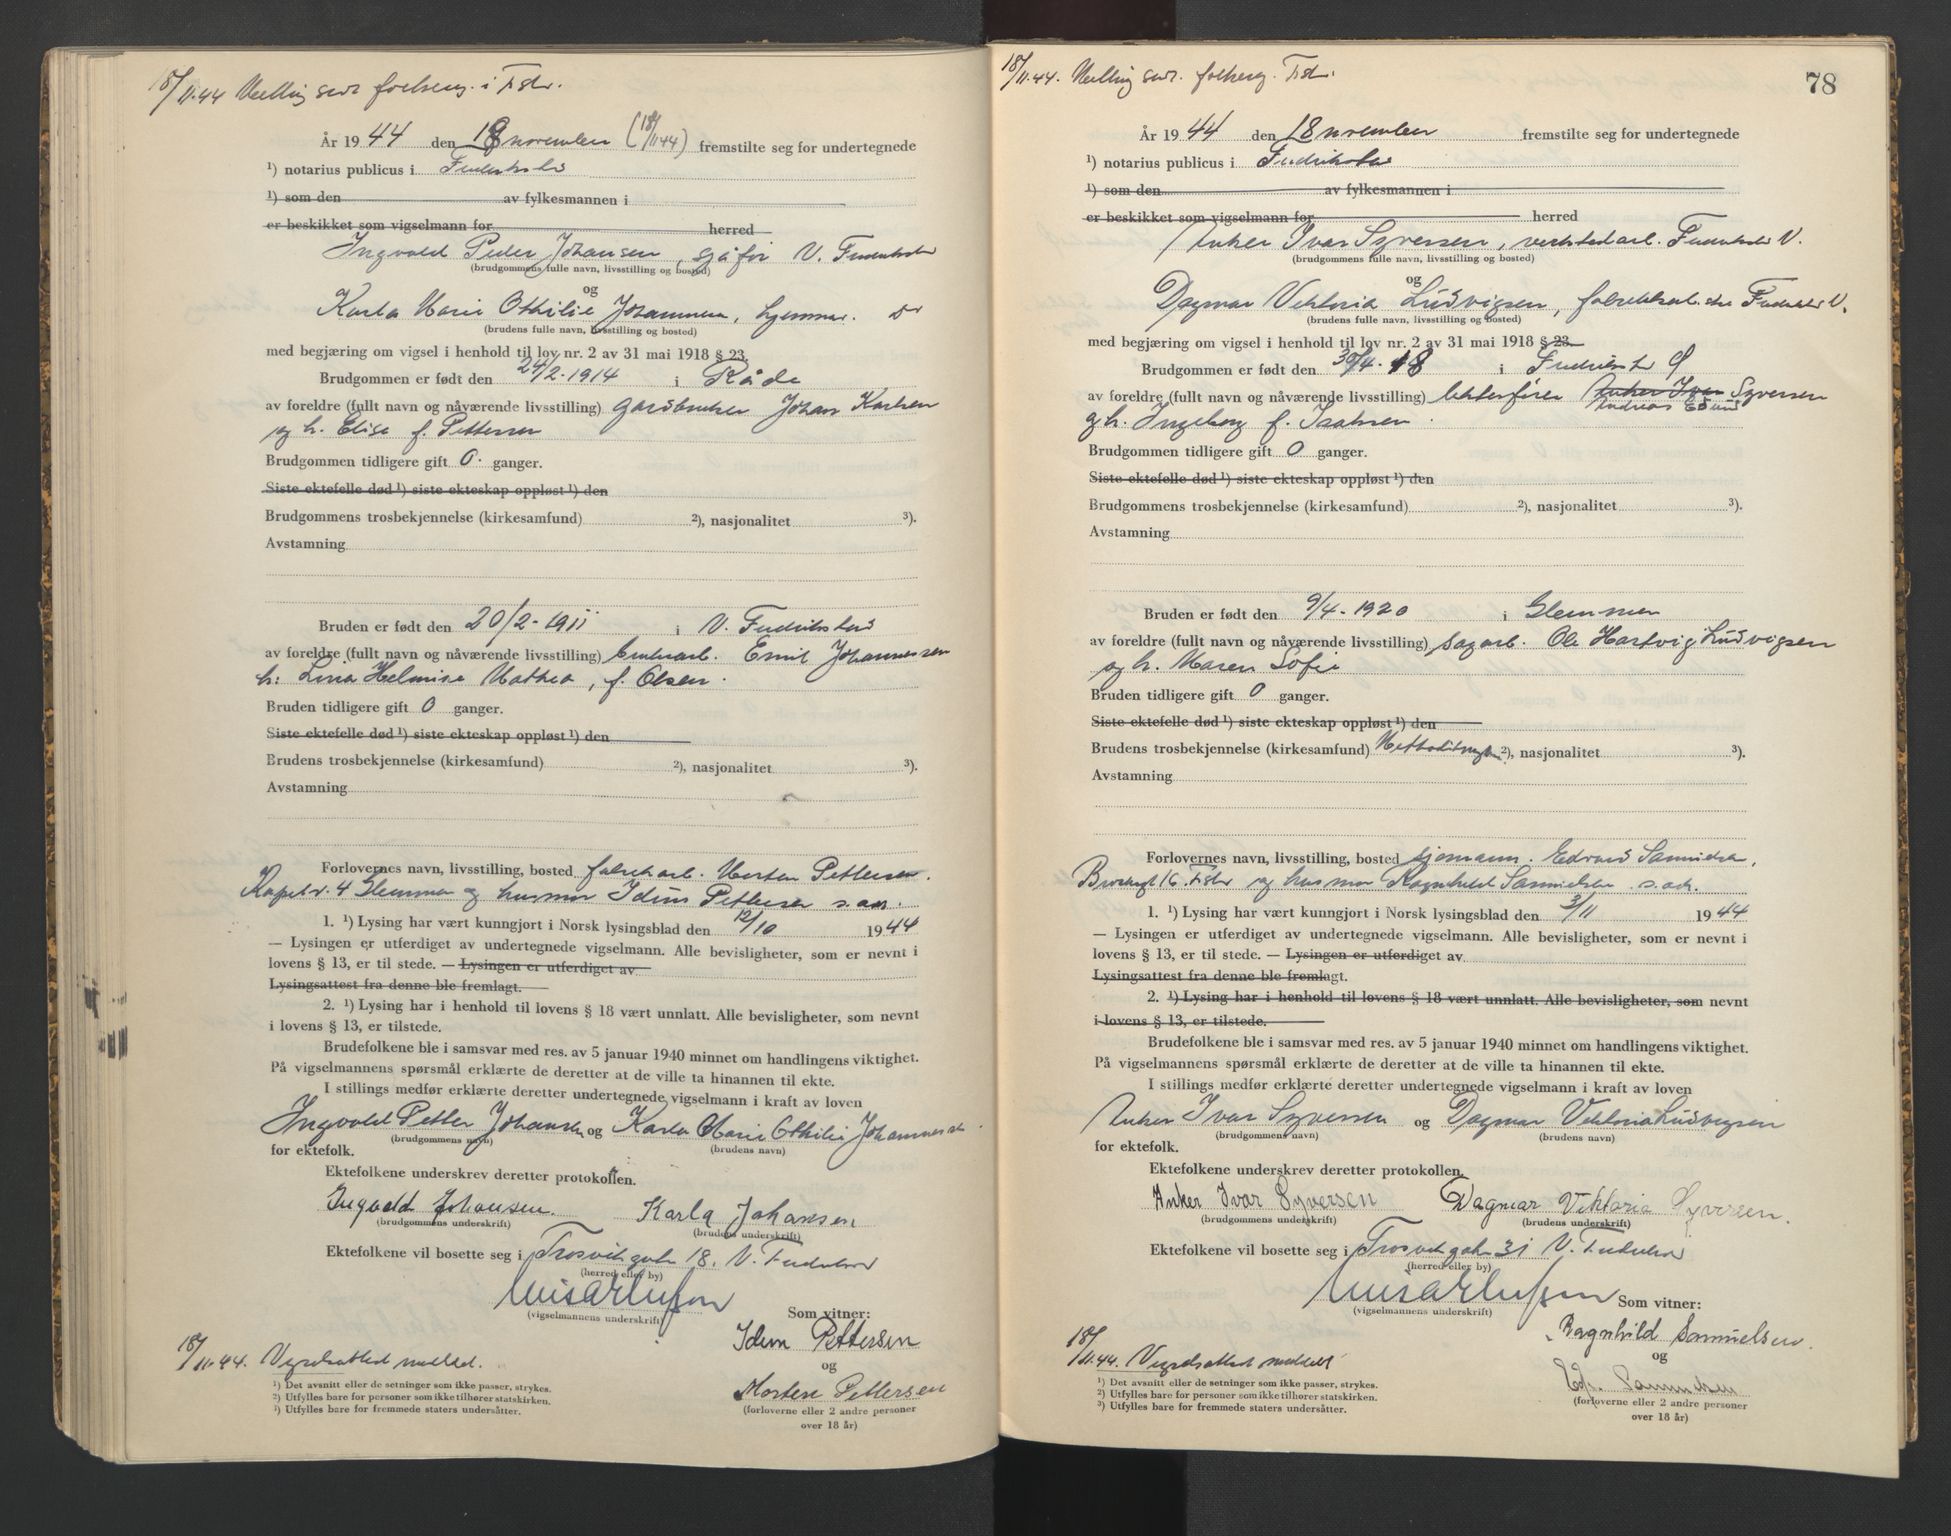 18/11.44 Melling sør folkereg. i F.str.
År 1944 den 18 november (18/11 44) fremstilte seg for undertegnede
1) notarius publicus i Fredrikstad
1) som den av fylkesmannen i
er beskikket som vigselmann for herred
Ingvald Peder Johansen, sjåfør V. Fredrikstad
(brudgommens fulle navn, livsstilling og bosted)
og
Karla Marie Othilie Johannesen, hjemmev. do
(brudens fulle navn, livsstilling og bosted)
med begjæring om vigsel i henhold til lov nr. 2 av 31 mai 1918 § 23.
Brudgommen er født den 24/2-1914 i Råde
av foreldre (fullt navn og nåværende livsstilling) gårdbruker Johan Karlsen
og h. Elise f. Pettersen
Brudgommen tidligere gift 0. ganger.
Siste ektefelle død 1) siste ekteskap oppløst 1) den
Brudgommens trosbekjennelse (kirkesamfund) 2), nasjonalitet 3).
Avstamning
Bruden er født den 20/2-1911 i V. Fredrikstad
av foreldre (fullt navn og nåværende livsstilling) Emil Johannessen
h: Lina Helmine Mathea, f. Olsen.
Bruden tidligere gift 0 ganger.
Siste ektefelle død 1) siste ekteskap oppløst 1) den
Brudens trosbekjennelse (kirkesamfund) 2), nasjonalitet 3).
Avstamning
Forlovernes navn, livsstilling, bosted fabrikarb. Morten Pettersen.
Kapelv. 4 Glemmen og husmor Idun Pettersen s. adr.
1. 1) Lysing har vært kunngjort i Norsk lysingsblad den 12/10 1944
— Lysingen er utferdiget av undertegnede vigselmann. Alle bevisligheter, som er nevnt i
lovens § 13, er til stede. — Lysingen er utferdiget av
Lysingsattest fra denne ble fremlagt.
2. 1) Lysing har i henhold til lovens § 18 vært unnlatt. Alle bevisligheter, som nevnt
i lovens § 13, er tilstede.
Brudefolkene ble i samsvar med res. av 5 januar 1940 minnet om handlingens viktighet.
På vigselmannens spørsmål erklærte de deretter at de ville ta hinannen til ekte.
I stillings medfør erklærte deretter undertegnede vigselmann i kraft av loven
Ingvald Petter Johansen og Karla Marie Othilie Johannessen
(brudgommens navn) (brudens navn)
for ektefolk.
Ektefolkene underskrev deretter protokollen.
Ingvald Johansen. Karla Johansen
(brudgommens underskrift) (brudens underskrift)
Ektefolkene vil bosette seg i Trosvikgate 18. V. Fredrikstad
(herred eller by)
(vigselmannens underskrift)
Som vitner:
Idun Pettersen
og
Morten Pettersen
(forloverne eller 2 andre personer
over 18 år)
18/11.44. Vigselsattest meddelt.
1) Det avsnitt eller de setninger som ikke passer, strykes.
2) Utfylles bare for personer som ikke tilhører statskirken.
1) Utfylles bare for fremmede staters undersåtter.
18/11.44. Melling sør. folkereg. F.str.
78
År 1944 den 18 november fremstilte seg for undertegnede
1) notarius publicus i Fredrikstad
1) som den av fylkesmannen i
er beskikket som vigselmann for herred
Anker Ivar Syversen, verkstedarb. Fredrikstad V.
(brudgommens fulle navn, livsstilling og bosted)
og
Dagmar Viktoria Ludvigsen, fabrikkarb.ske Fredrikstad V.
(brudens fulle navn, livsstilling og bosted)
med begjæring om vigsel i henhold til lov nr. 2 av 31 mai 1918 § 23.
Brudgommen er født den 30/4-18 i Fredrikstad Ø
av foreldre (fullt navn og nåværende livsstilling) lekterfører Anker Ivar Syversen
Andreas Edvin
og h. Ingeborg f. Isaksen.
Brudgommen tidligere gift 0 ganger.
Siste ektefelle død 1) siste ekteskap oppløst 1) den
Brudgommens trosbekjennelse (kirkesamfund) 2), nasjonalitet 3).
Avstamning
Bruden er født den 9/4-1920 i Glemmen
av foreldre (fullt navn og nåværende livsstilling) sagarb. Ole Hartvig Ludvigsen
og h. Maren Sofie
Bruden tidligere gift 0 ganger.
Siste ektefelle død 1) siste ekteskap oppløst 1) den
Brudens trosbekjennelse (kirkesamfund) 2), nasjonalitet 3).
Avstamning
Forlovernes navn, livsstilling, bosted sjømann. Edvard Samuelsen,
16 F.str og husmor Ragnhild Samuelsen s. adr.
1. 1) Lysing har vært kunngjort i Norsk lysingsblad den 3/11 1944
— Lysingen er utferdiget av undertegnede vigselmann. Alle bevisligheter, som er nevnt i
lovens § 13, er til stede. — Lysingen er utferdiget av
Lysingsattest fra denne ble fremlagt.
2. 1) Lysing har i henhold til lovens § 18 vært unnlatt. Alle bevisligheter, som nevnt
i lovens § 13, er tilstede.
Brudefolkene ble i samsvar med res. av 5 januar 1940 minnet om handlingens viktighet.
På vigselmannens spørsmål erklærte de deretter at de ville ta hinannen til ekte.
I stillings medfør erklærte deretter undertegnede vigselmann i kraft av loven
Anker Ivar Syversen og Dagmar Viktoria Ludvigsen
(brudgommens navn) (brudens navn)
for ektefolk.
Ektefolkene underskrev deretter protokollen.
Anker Ivar Syversen Dagmar Viktoria Syversen.
(brudgommens underskrift) (brudens underskrift)
Ektefolkene vil bosette seg i Trosvikgate 31 V. Fredrikstad
(herred eller by)
(vigselmannens underskrift)
Som vitner:
Ragnhild Samuelsen.
og
Edv. Samuelsen
(forloverne eller 2 andre personer
over 18 år)
18/11.44. Vigselsattest meddelt
1) Det avsnitt eller de setninger som ikke passer, strykes.
2) Utfylles bare for personer som ikke tilhører statskirken.
3) Utfylles bare for fremmede staters undersåtter.